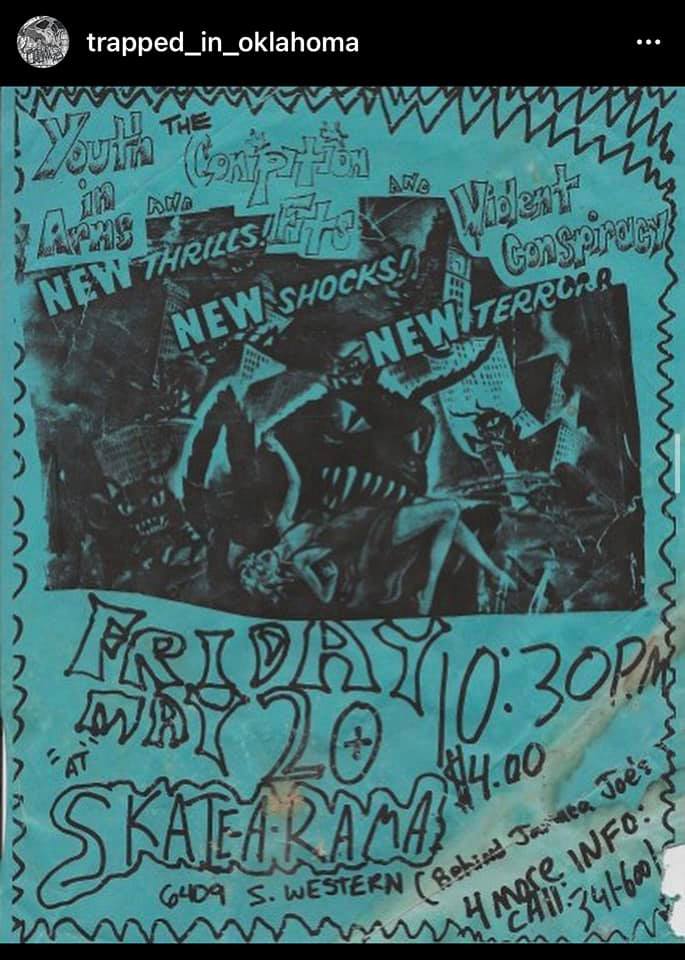 trapped_in_oklahoma
Youth in Arms
AND
THE Conıption Fits
AND
Violent Conspiracy
NEW THRILLS!
NEW SHOCKS!
NEW TERROR
FRIDAY
MAY 20th
10:30PM
"AT"
$4.00
SKATE-A-RAMA
6409 S. WESTERN (Behind Jamaica Joe's
4 MORE INFO:
CALL: 341-6001